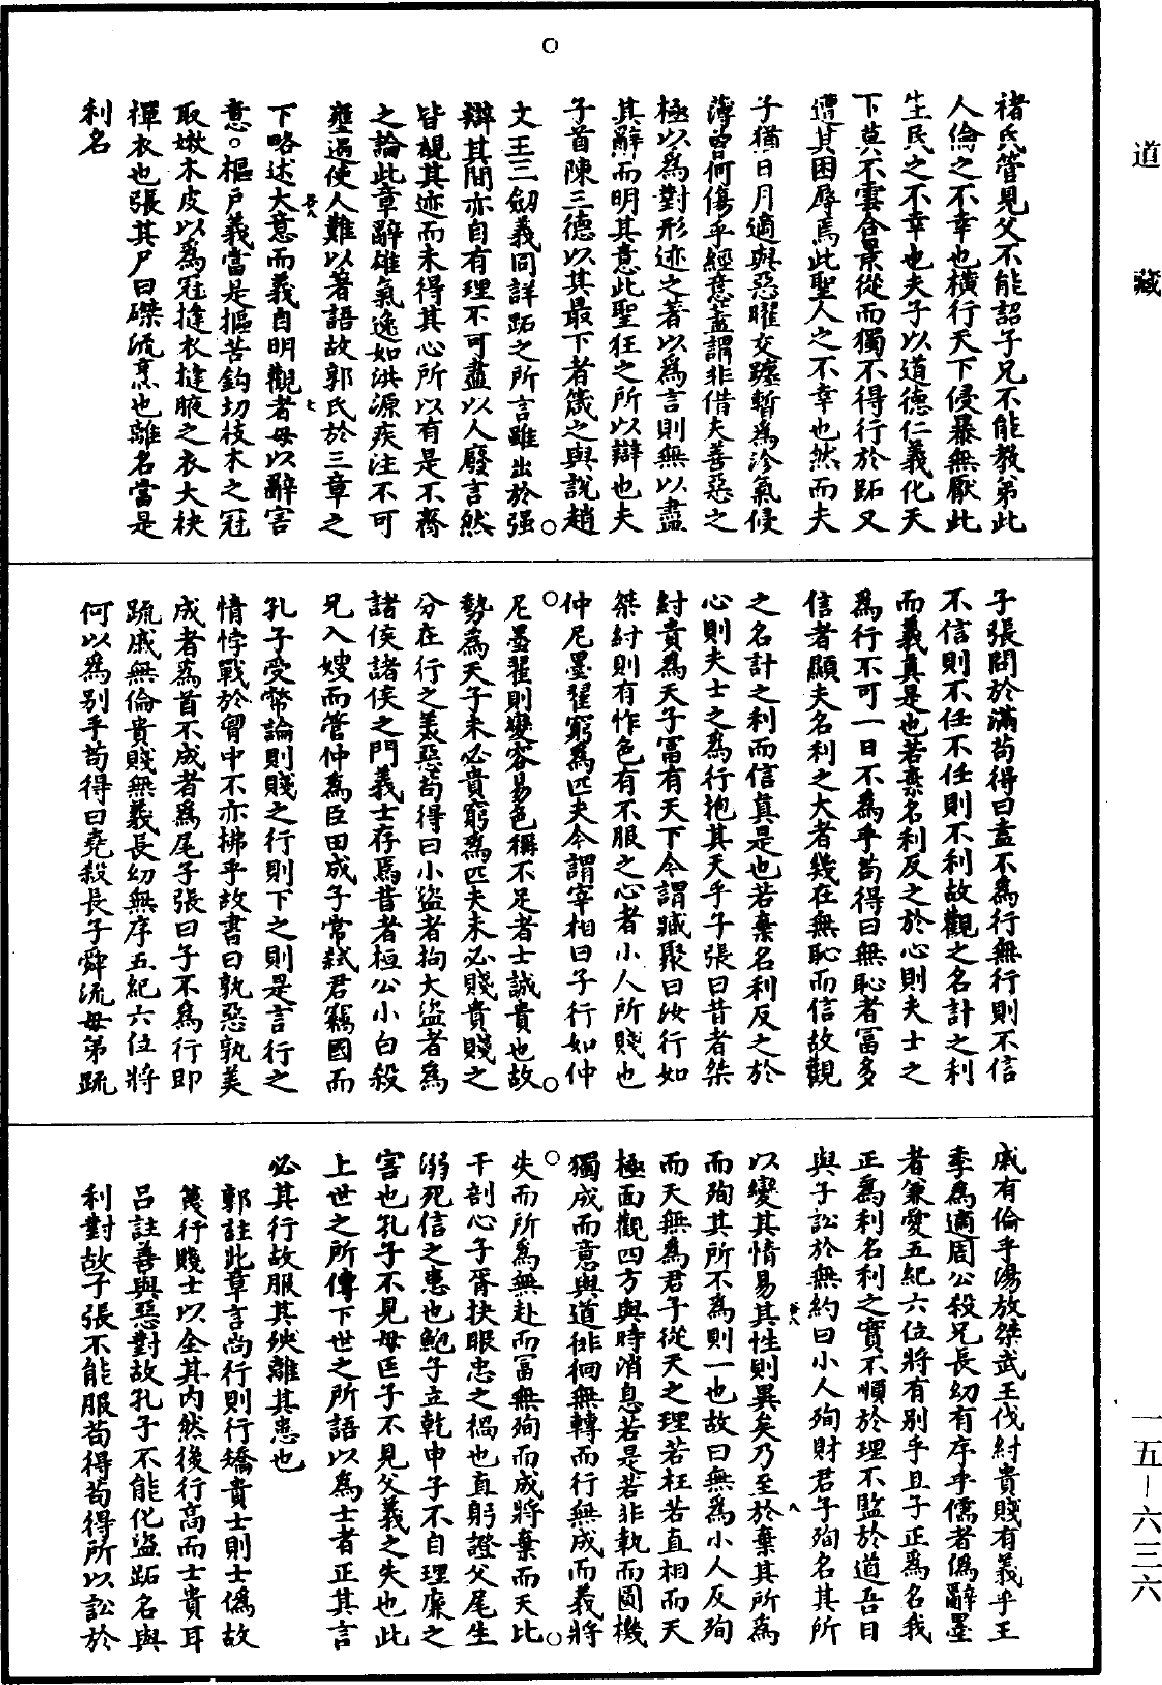 道藏
褚氏管見父不能詔子兄不能教弟此
人倫之不幸也橫行天下侵暴無厭此
生民之不幸也夫子以道德仁義化天
下莫不雲合景從而獨不得行於跖又
遭其困辱焉此聖人之不幸也然而夫
子猶日月適與惡曜交躔暫為沴氣侵
薄曾何傷乎經意蓋謂非借夫善惡之
極以為對形迹之著以為言則無以盡
其辭而明其意此聖狂之所以辯也夫
子首陳三德以其最下者箴之與說趙
文王三劒義同詳跖之所言雖出於强
辯其間亦自有理不可盡以人廢言然
皆覩其迹而未得其心所以有是不齊
之論此章辭雄氣逸如洪源疾注不可
壅遏使人難以著語故郭氏於三章之
下略述大意而義自明觀者毋以辭害
意○樞戶義當是摳苦鈎切枝木之冠
取嫩木皮以為冠摓衣摓腋之衣大袂
襌衣也張其尸曰磔流烹也離名當是
利名
子張問於滿苟得曰盍不為行無行則不信
不信則不任不任則不利故觀之名計之利
而義真是也若棄名利反之於心則夫士之
為行不可一日不為乎苟得曰無恥者富多
信者顯夫名利之大者幾在無恥而信故觀
之名計之利而信真是也若棄名利反之於
心則夫士之為行抱其天乎子張曰昔者桀
紂貴為天子富有天下今謂臧聚曰汝行如
桀紂則有怍色有不服之心者小人所賤也
仲尼墨翟窮為匹夫今謂宰相曰子行如仲
尼墨翟則變容易色稱不足者士誠貴也故
勢為天子未必貴窮為匹夫未必賤貴賤之
分在行之美惡苟得曰小盜者拘大盜者為
諸侯諸侯之門義士存焉昔者桓公小白殺
兄入嫂而管仲為臣田成子常弒君竊國而
孔子受幣論則賤之行則下之則是言行之
情悖戰於胷中不亦拂乎故書曰孰惡孰美
成者為首不成者為尾子張曰子不為行即
疏戚無倫貴賤無義長幼無序五紀六位將
何以為別乎苟得曰堯殺長子舜流母弟疏
戚有倫乎湯放桀武王伐紂貴賤有義乎王
季為適周公殺兄長幼有序乎儒者偽辭墨
者兼愛五紀六位將有別乎且子正為名我
正為利名利之實不順於理不監於道吾日
與子訟於無約曰小人殉財君子殉名其所
以變其情易其性則異矣乃至於棄其所為
而殉其所不為則一也故曰無為小人反殉
而天無為君子從天之理若枉若直相而天
極面觀四方與時消息若是若非執而圓機
獨成而意與道徘徊無轉而行無成而義將
失而所為無赴而富無殉而成將棄而天比
干剖心子胥抉眼忠之禍也直躬證父尾生
溺死信之患也鮑子立乾申子不自理廉之
害也孔子不見母匡子不見父義之失也此
上世之所傳下世之所語以為士者正其言
必其行故服其殃離其患也
郭註此章言尚行則行矯貴士則士偽故
篾行賤士以全其內然後行高而士貴耳
呂註善與惡對故孔子不能化盜跖名與
利對故子張不能服苟得苟得所以訟於
一五－六三六